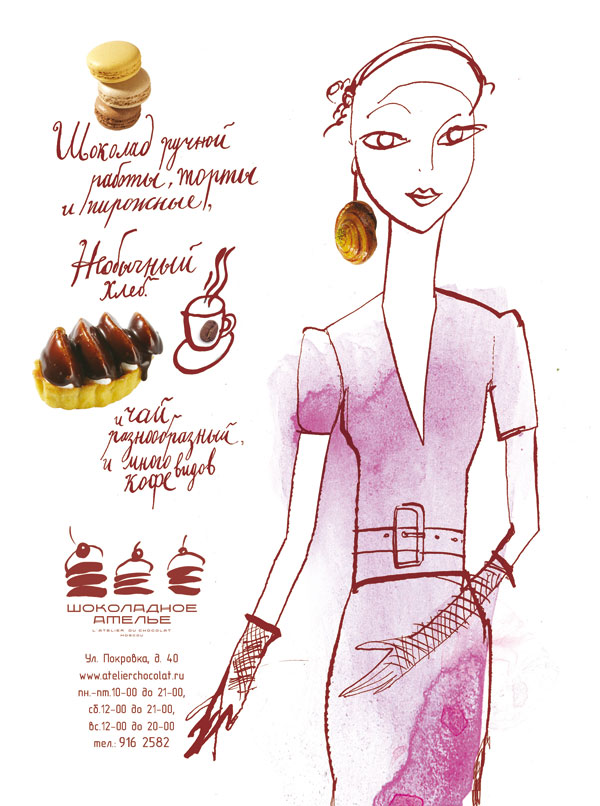 Шоколад ручной
работы, торты
и пирожные,
Необычный
хлеб.
и чай
разнообразный,
и много видов
кофе
ШОКОЛАДНОЕ
АТЕЛЬЕ
L'ATELIER DU CHOCOLAT
MOSCOU
Ул. Покровка, д. 40
www.atelierchocolat.ru
пн.-пт.10-00 до 21-00,
сб.12-00 до 21-00,
вс.12-00 до 20-00
тел.: 916 2582